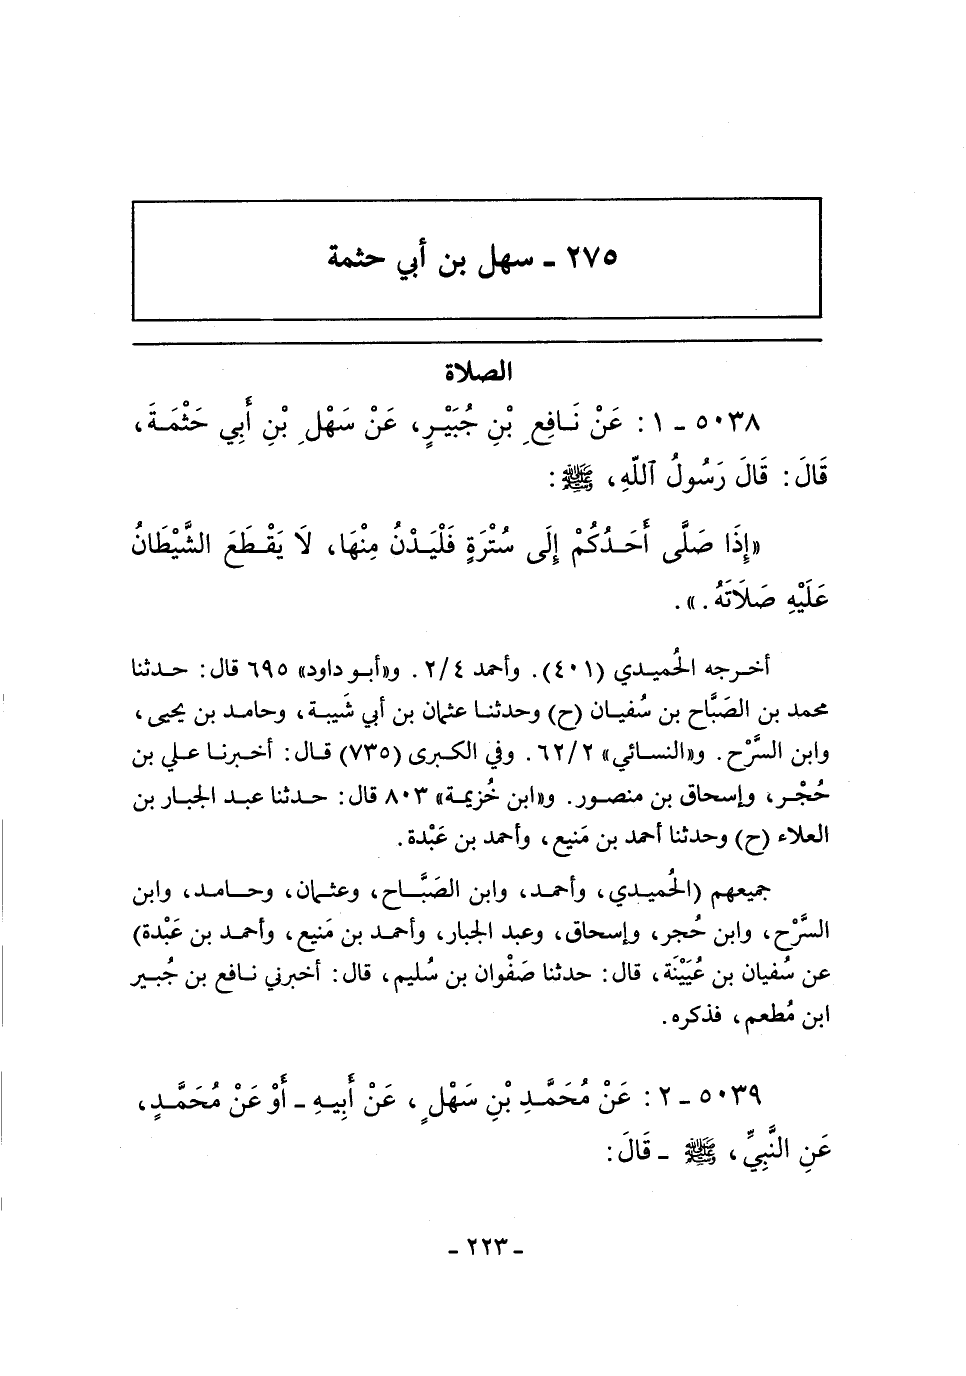 ٢٧٥ ـ سهل بن أبي حثمة
الصلاة
٥٠٣٨ ـ ١ : عَنْ نَافِعِ بْنِ جُبَيْرٍ، عَنْ سَهْلِ بْنِ أَبِي حَثْمَةَ،
قَالَ: قَالَ رَسُولُ ٱللّهِ، ﷺ:
«إِذَا صَلَّى أَحَدُكُمْ إِلَى سُتْرَةٍ فَلْيَدْنُ مِنْهَا، لَا يَقْطَعَ الشَّيْطَانُ
عَلَيْهِ صَلَاتَهُ.».
أخرجه الحُميدي (٤٠١). وأحمد ٢/٤. و«أبو داود» ٦٩٥ قال: حدثنا
محمد بن الصَبَّاح بن سُفيان (ح) وحدثنا عثمان بن أبي شَيبة، وحامد بن يحيى،
وابن السَّرْح. و«النسائي» ٦٢/٢. وفي الكبرى (٧٣٥) قال: أخبرنا علي بن
حُجْر، وإسحاق بن منصور. و«ابن خُزيمة» ٨٠٣ قال: حدثنا عبد الجبار بن
العلاء (ح) وحدثنا أحمد بن مَنيع، وأحمد بن عَبْدة.
جميعهم (الحُميدي، وأحمد، وابن الصَبَّاح، وعثمان، وحامد، وابن
السَّرْح، وابن حُجر، وإسحاق، وعبد الجبار، وأحمد بن مَنيع، وأحمد بن عَبْدة)
عن سُفيان بن عُيَيْنَة، قال: حدثنا صَفْوان بن سُليم، قال: أخبرني نافع بن جُبير
ابن مُطعم، فذكره.
٥٠٣٩ ـ ٢ : عَنْ مُحَمَّدِ بْنِ سَهْلٍ، عَنْ أَبِيهِ ـ أَوْ عَنْ مُحَمَّدٍ،
عَنِ النَّبِيِّ، ﷺ ـ قَالَ:
ـ ٢٢٣ ـ